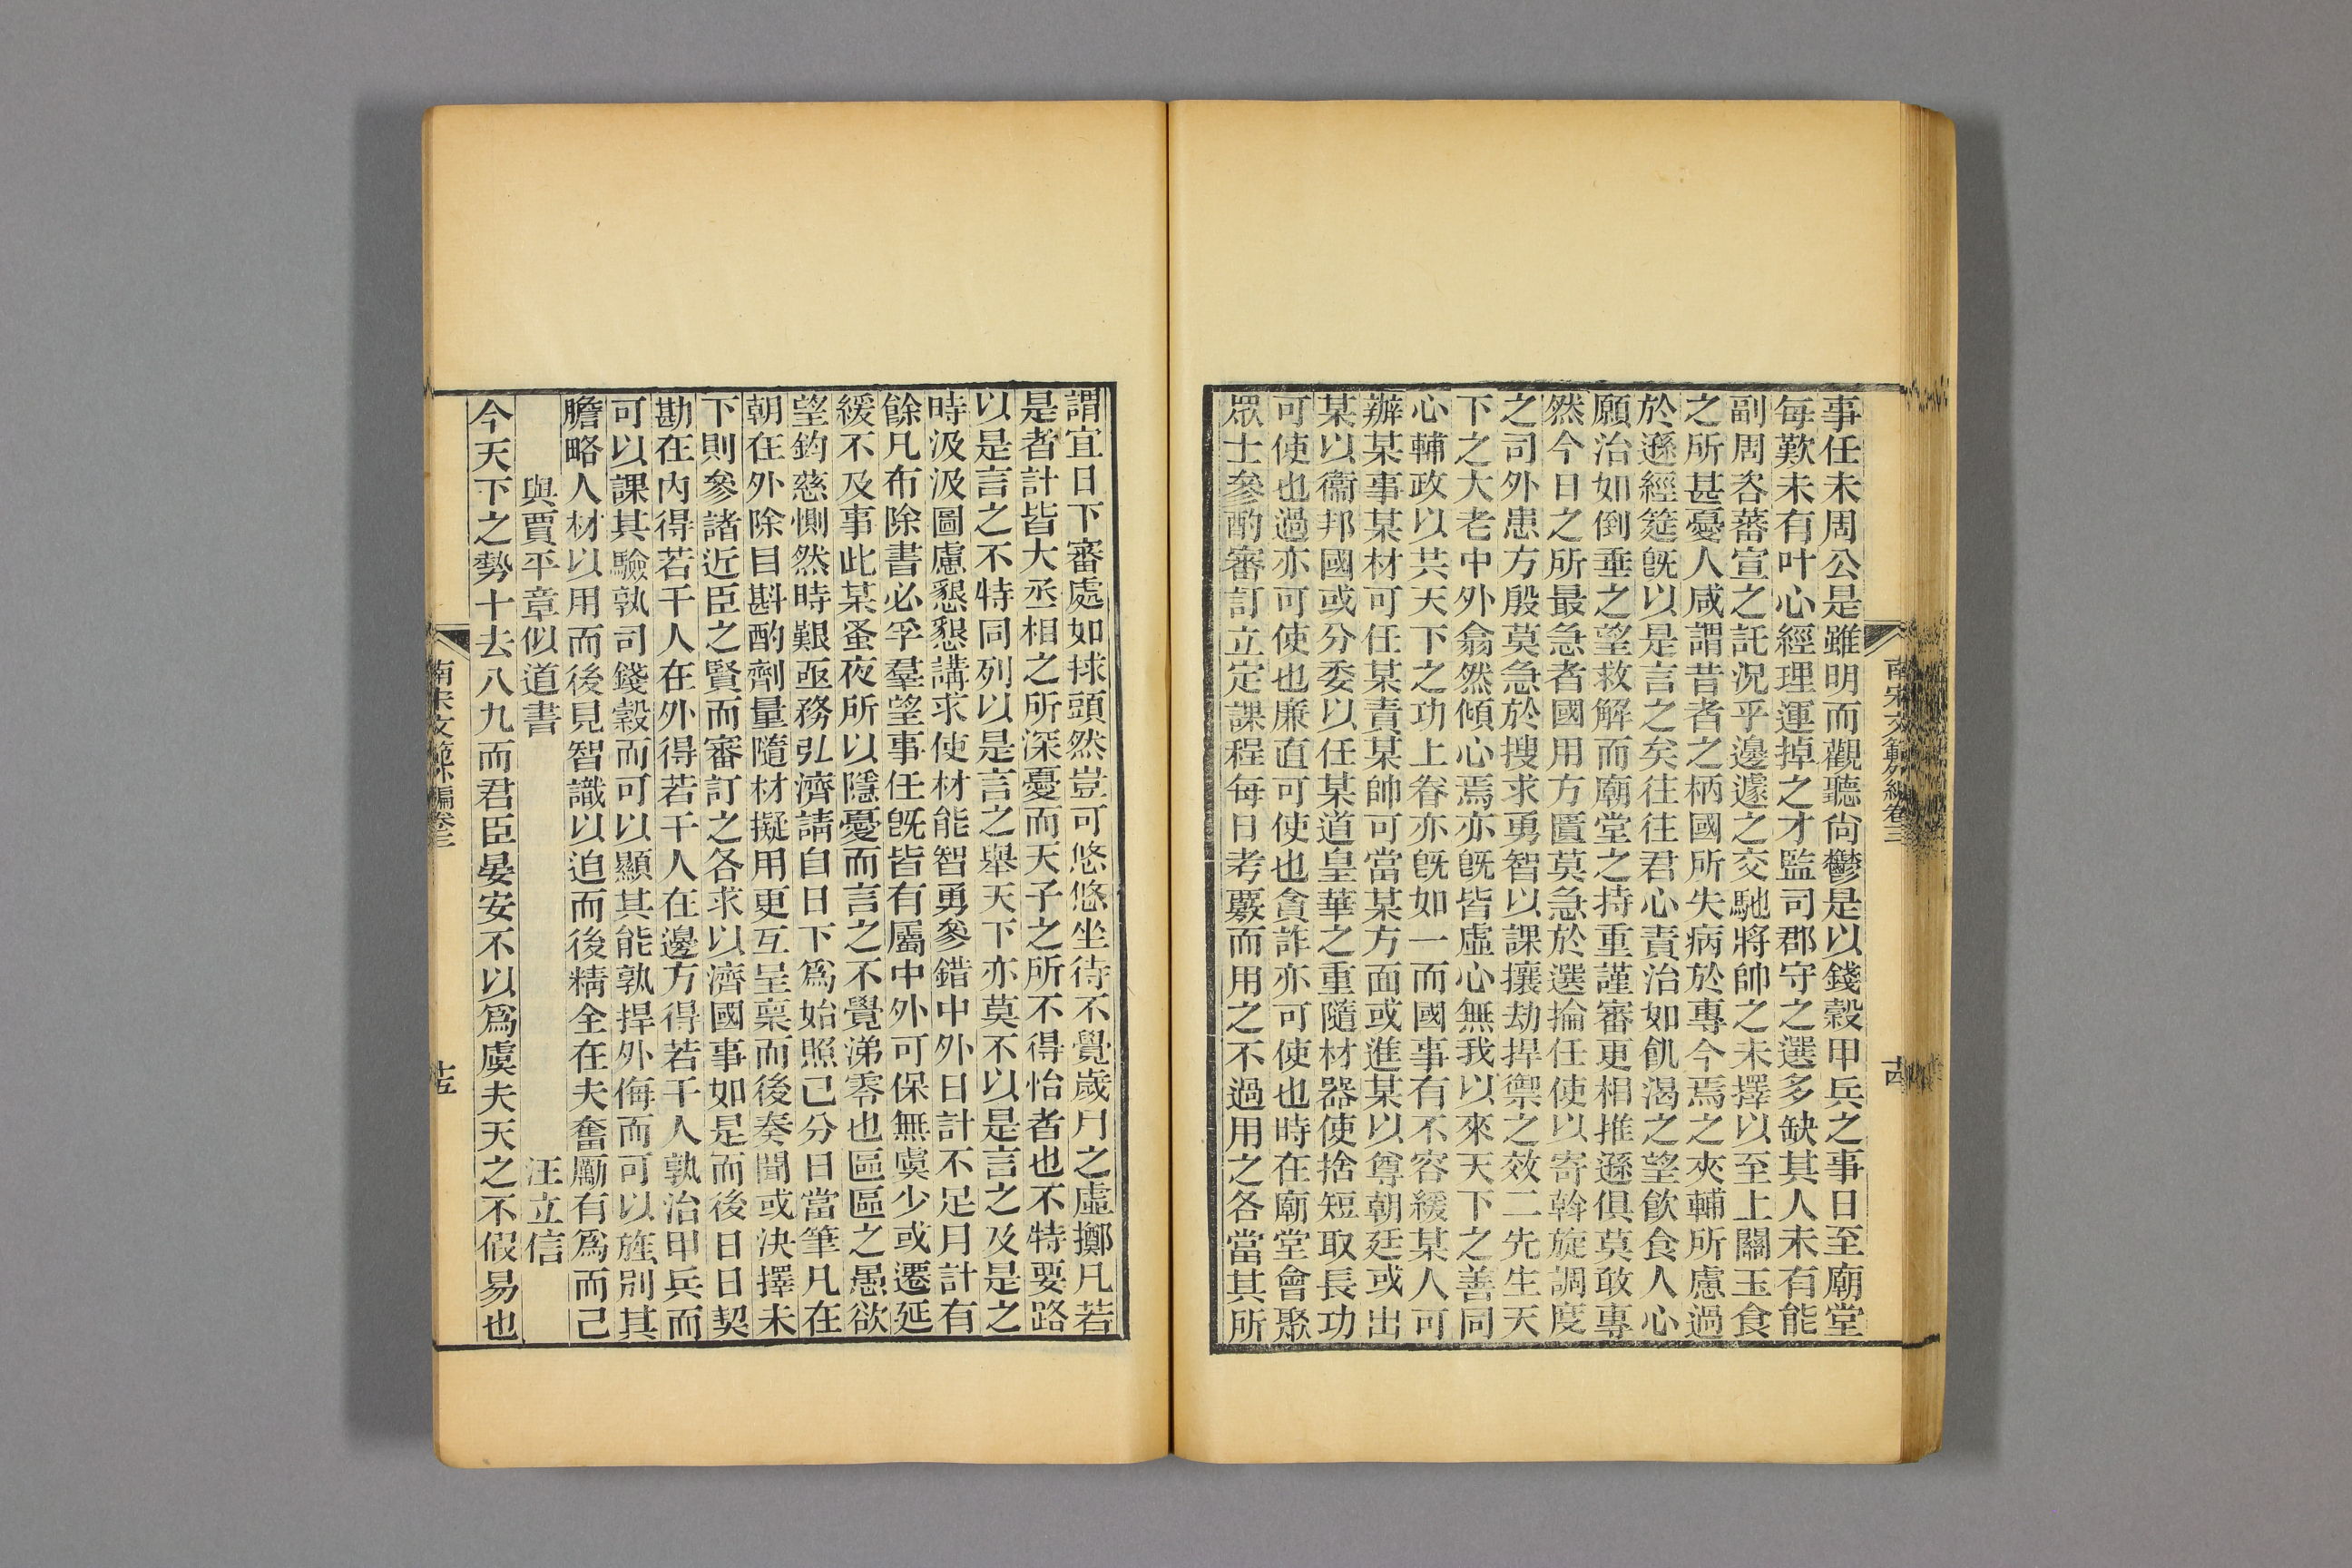 事任未周公是雖明而觀聽尙鬱是以錢穀甲兵之事日至廟堂
每歎未有叶心經理運掉之才監司郡守之選多缺其人未有能
副周咨蕃宣之託況乎邊遽之交馳將帥之未擇以至上關玉食
之所甚憂人咸謂昔者之柄國所失病於專今焉之夾輔所慮過
於遜經筵旣以是言之矣往往君心責治如飢渴之望飮食人心
願治如倒垂之望救解而廟堂之持重謹審更相推遜俱莫敢專
然今日之所最急者國用方匱莫急於選掄任使以寄斡旋調度
之司外患方殷莫急於搜求勇智以課攘劫捍禦之效二先生天
下之大老中外翕然傾心焉亦旣皆虛心無我以來天下之善同
心輔政以共天下之功上眷亦旣如一而國事有不容緩某人可
辦某事某材可任某責某帥可當某方面或進某以尊朝廷或出
某以衞邦國或分委以任某道皇華之重隨材器使捨短取長功
可使也過亦可使也廉直可使也貪詐亦可使也時在廟堂會聚
眾士參酌審訂立定課程每日考覈而用之不過用之各當其所
南宋文範外編卷三
謂宜日下審處如捄頭然豈可悠悠坐待不覺歲月之虛擲凡若
是者計皆大丞相之所深憂而天子之所不得怡者也不特要路
以是言之不特同列以是言之舉天下亦莫不以是言之及是之
時汲汲圖慮懇懇講求使材能智勇參錯中外日計不足月計有
餘凡布除書必孚羣望事任旣皆有屬中外可保無虞少或遷延
緩不及事此某蚤夜所以隱憂而言之不覺涕零也區區之愚欲
望鈞慈惻然時艱亟務弘濟請自日下爲始照己分日當筆凡在
朝在外除目斟酌劑量隨材擬用更互呈稟而後奏聞或決擇未
下則參諸近臣之賢而審訂之各求以濟國事如是而後日日契
勘在內得若干人在外得若干人在邊方得若干人孰治甲兵而
可以課其驗孰司錢穀而可以顯其能孰捍外侮而可以旌別其
膽略人材以用而後見智識以迫而後精全在夫奮勵有爲而己
與賈平章似道書　汪立信
今天下之勢十去八九而君臣晏安不以爲虞夫天之不假易也
南宋文範外編卷三